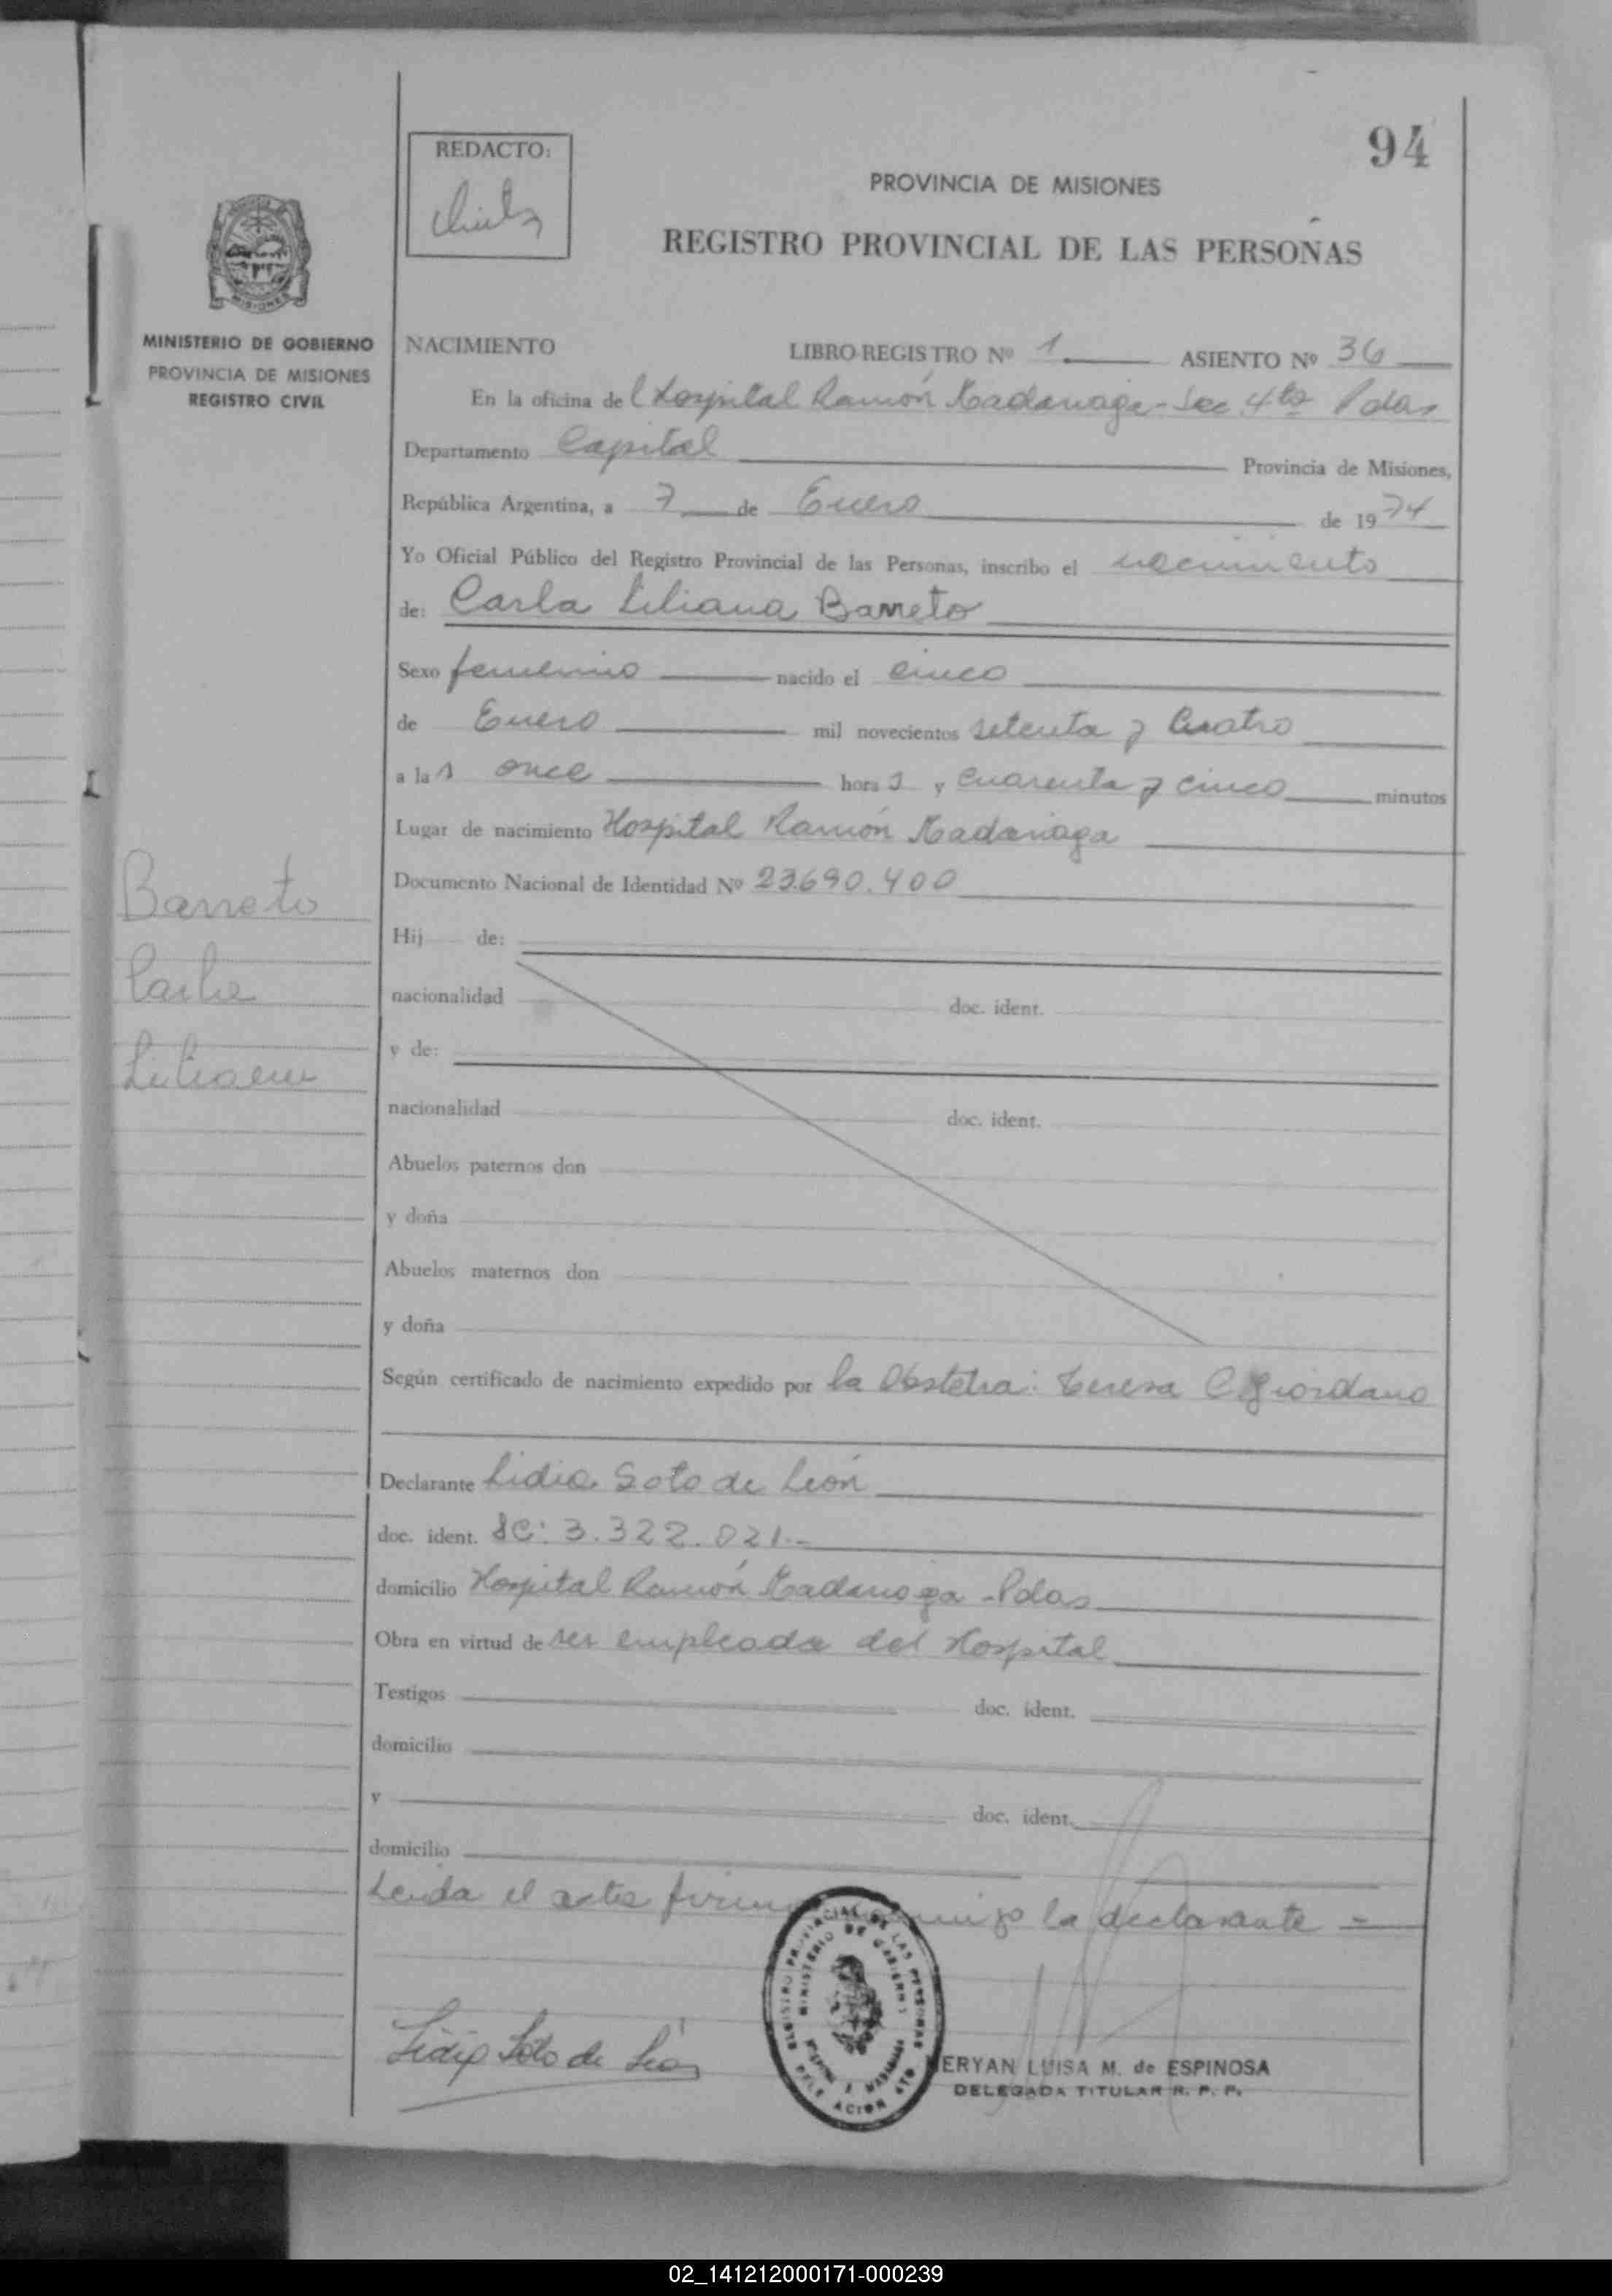 94
REDACTO:
PROVINCIA DE MISIONES
REGISTRO PROVINCIAL DE LAS PERSONAS
MISIONES
MINISTERIO DE GOBIERNO
PROVINCIA DE MISIONES
REGISTRO CIVIL
NACIMIENTO LIBRO REGISTRO Nº 1 ASIENTO Nº 36
En la oficina del Hospital Ramón Madariaga - Sec 4ta Pdas
Departamento Capital Provincia de Misiones,
República Argentina, a 7 de Enero de 1974
Yo Oficial Público del Registro Provincial de las Personas, inscribo el nacimiento
de: Carla Liliana Barreto
Sexo femenino nacido el cinco
de Enero mil novecientos setenta y Cuatro
a las once horas y cuarenta y cinco minutos
Lugar de nacimiento Hospital Ramón Madariaga
Documento Nacional de Identidad Nº 23.690.400
Barreto
Carla
Liliana
Hij de:
nacionalidad doc. ident.
y de:
nacionalidad doc. ident.
Abuelos paternos don
y doña
Abuelos maternos don
y doña
Según certificado de nacimiento expedido por la Obstetra: Teresa C. Giordano
Declarante Lidia Soto de León
doc. ident. LC: 3.322.021.-
domicilio Hospital Ramón Madariaga - Pdas
Obra en virtud de ser empleada del Hospital
Testigos doc. ident.
domicilio
y doc. ident.
domicilio
Leida el acta la declarante -
Lidia Soto de León
REGISTRO PROVINCIAL DE LAS PERSONAS
MINISTERIO DE GOBIERNO
ERYAN LUISA M. de ESPINOSA
DELEGADA TITULAR R. P. P.
02_141212000171-000239